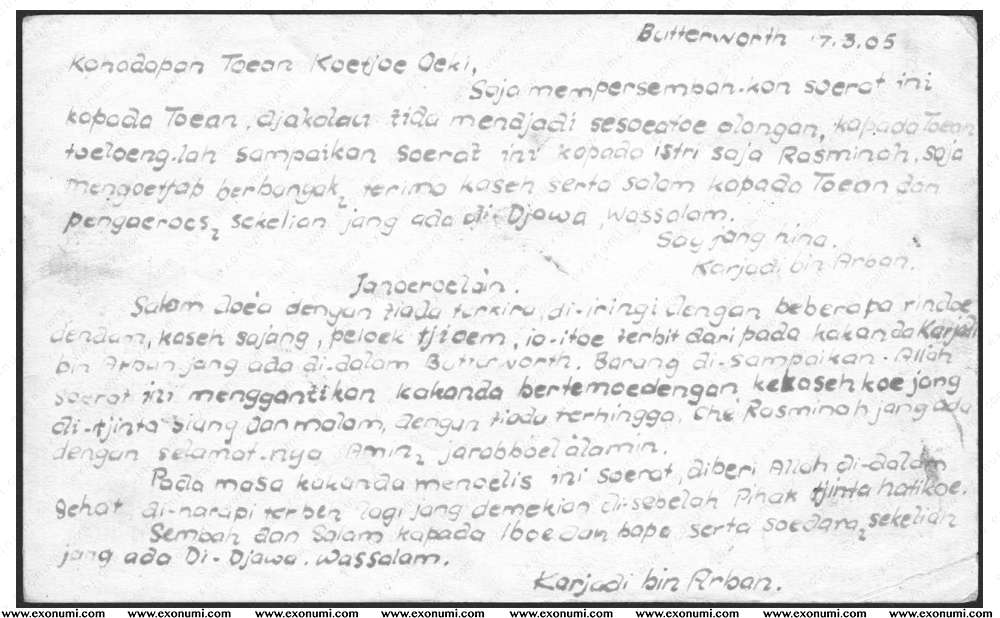 Butterworth 17.3.05
Kahadapan Toean Koetjoe Oeki,
Saja mempersembah-kan soerat ini
kapada Toean, djakalau tida mendjadi sesoeatoe alangan, kapada Toean
toeloeng-lah sampaikan soerat ini kapada istri saja Rasminah, saja
mengoetjap berbanyak2 terima kaseh serta salam kapada Toean dan
pengaeroes2 sekelian jang ada di-Djawa, Wassalam.
Say jang hina.
Karjadi bin Arban.
Janoeroelain.
Salam doea dengan tiada terkira, di-iringi dengan beberapa rindoe
dendam, kaseh sajang, peloek tjioem, ia-itoe terbit dari pada kakanda Karjadi
bin Arban jang ada di-dalam Butterworth. Barang di-sampaikan Allah
soerat ini menggantikan kakanda bertemoedengan kekasehkoe jang
di-tjinta siang dan malam, dengan tiada terhingga, Che' Rasminah jang ada
dengan selamat-nya Amin2 jarabboelalamin.
Pada masa kakanda menoelis ini soerat, diberi Allah di-dalam
sehat, di-harapi terben lagi jang demekian di-sebelah Pihak tjinta hatikoe.
Sembah dan Salam kapada Iboe dan bapa serta soedara2 sekelian
jang ada Di-Djawa. Wassalam.
Karjadi bin Arban.
www.exonumi.com www.exonumi.com www.exonumi.com www.exonumi.com www.exonumi.com www.exonumi.com www.exonumi.com www.exonumi.com